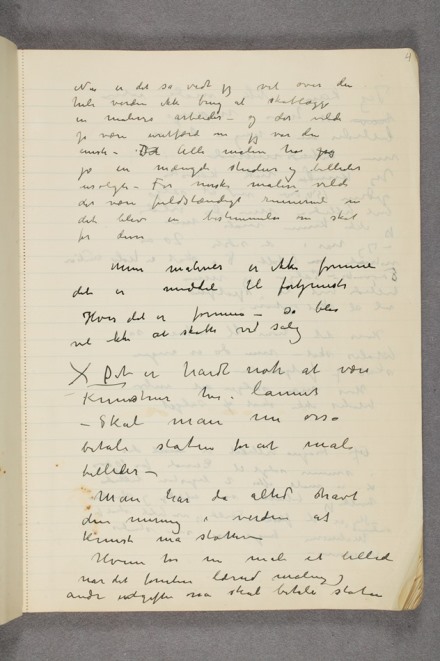 4
Nu er det så vidt jeg vet over den
hele verden ikke brug at skatlægge
en malers arbeider – og det vilde
jo være uretfærd om jeg var den
eneste – Det Alle malere har jeg
jo en mængde studier og billeder
usolgte – For norske malere vilde
det være fuldstændigt ruinerende om
det blev en bestemmelse om skat
for dem
Mine malerier er ikke formue
det er middel til fortjeneste
Hvis det er formue – så blev
vel ikke at skatte ved salg
X Det er hardt nok at være
Kunstner her i landet
– Skal man nu også
betale staten for at male
billeder –
Man har da altid havt
den mening i verden at
Kunst må støttes
Hvem tør nu male et billed
når det foruden lærred maling
andre udgifter også skal betale staten